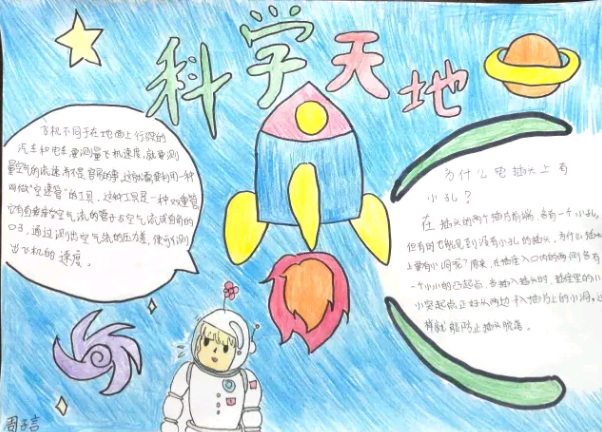 科学天地
飞机不同于在地面上行驶的
汽车和电车,要测量飞机速度,就要测
量空气的流速,并不是容易的事,这就需要利用一种
叫做“空速管”的工具,这种工具是一种双重管
它有着
空气流的管子与空气流成直角的
口子,通过测出空气流的压力差,便可以测
出飞机的速度。
为什么电插头上有
小孔?
在插头的两个插片前端,各有一个小孔
但有时也能见到没有小孔的插头。为什么插头
上要有小洞呢?原来,在插座入口内的两侧各有
一个小小的凸起点,当插入插头时,插座里的小
小突起点正好从两边卡入地方上的小洞,这
样就能防止插头脱落。
周子言